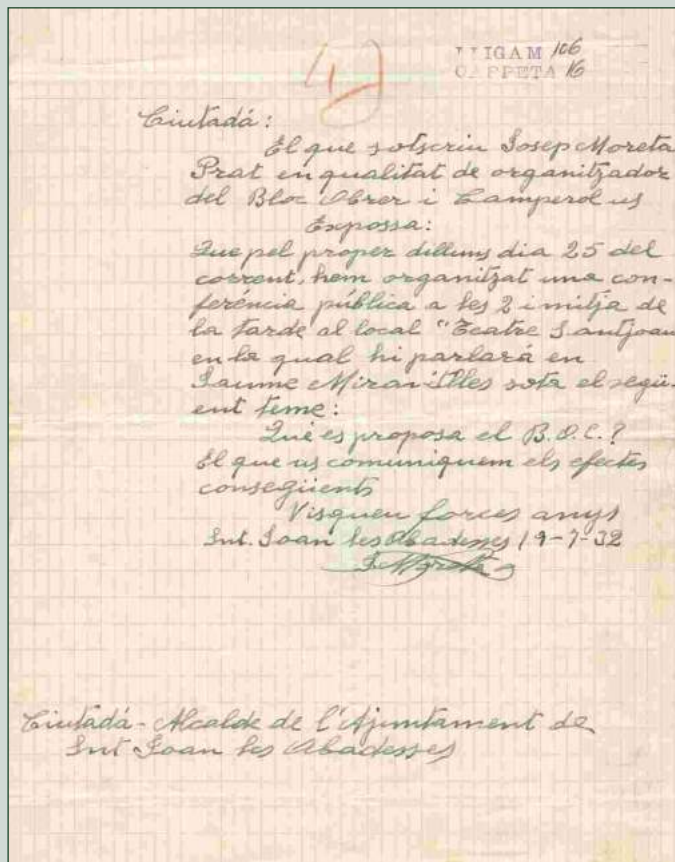 LLIGAM 106
CARPETA 16
Ciutadá:
El que sotscriu Josep Moreta
Prat en qualitat de organitzador
del Bloc Obrer i Camperol us
Expossa:
Que pel proper dilluns dia 25 del
corrent, hem organitzat una con-
feréncia pública a les 2 i mitja de
la tarde al local "Teatre Santjoan
en la qual hi parlará en
Jaume Miravitlles sota el següi-
ent teme:
Qué es proposa el B.O.C.?
El que us comuniquem els efectes
consegüients
Visqueu forces anys
Snt. Joan les Abadesses 19-7-32
J Moreta
Ciutadá-Alcalde de l'Ajuntament de
Snt Joan les Abadesses